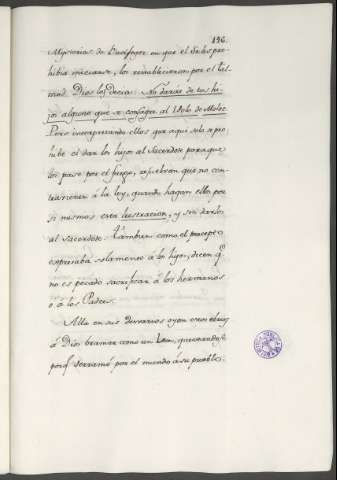 196.
Mysterios de en que el Sexto pro-
hibia , los restablecieron por el Tal-
mud. Dios les decia: No darás de tus hi-
jos alguno que se consagre al Idolo de Moloc.
Pero interpretando ellos que aqui solo pro-
hibe el dar los hijos al Sacerdote para que
los pase por el fuego, resuelven que no con-
travienen á la ley, quando hagan ellos por
si mismos esta lustracion, y sin darlos
al Sacerdote. Tambien como el precepto
expresaba solamente á los hijos, dicen q.e
no es pecado sacrificar á los hermanos
ó á los Padres.
Alla en sus desvarios oyen estos
á Dios bramar como un Leon, quexandose
porq.e derramó por el mundo á su pueblo: